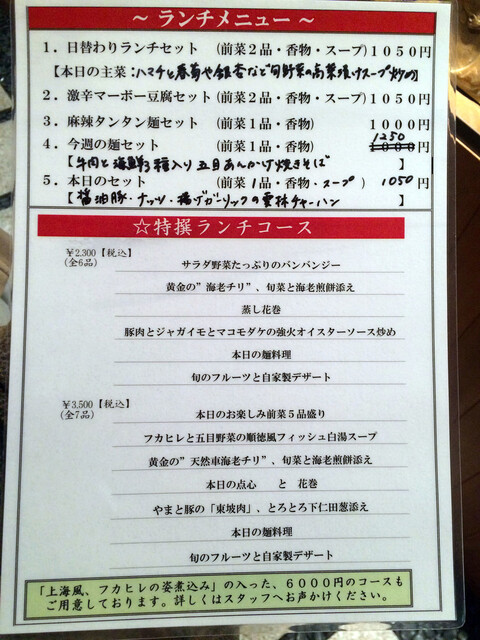 ～ ランチメニュー ～
1．日替わりランチセット （前菜２品・香物・スープ）１０５０円
【本日の主菜：ハマチと春菊や銀杏など旬野菜の高菜漬けスープ炒め】
2．激辛マーボー豆腐セット（前菜２品・香物・スープ）１０５０円
3．麻辣タンタン麺セット（前菜１品・香物） １０００円
4．今週の麺セット （前菜１品・香物） 1250 １０００円
【牛肉と海鮮3種入り 五目あんかけ焼きそば 】
5．本日のセット （前菜１品・香物・スープ ） 1050円
【醤油豚・ナッツ・揚げガーリックの雲林チャーハン 】
☆特撰ランチコース
￥2,300【税込】
(全6品)
サラダ野菜たっぷりのバンバンジー
黄金の”海老チリ”、旬菜と海老煎餅添え
蒸し花巻
豚肉とジャガイモとマコモダケの強火オイスターソース炒め
本日の麺料理
旬のフルーツと自家製デザート
￥3,500【税込】
(全7品)
本日のお楽しみ前菜５品盛り
フカヒレと五目野菜の順徳風フィッシュ白湯スープ
黄金の”天然車海老チリ”、旬菜と海老煎餅添え
本日の点心 と 花巻
やまと豚の「東坡肉」、とろとろ下仁田葱添え
本日の麺料理
旬のフルーツと自家製デザート
「上海風、フカヒレの姿煮込み」の入った、６０００円のコースも
ご用意しております。詳しくはスタッフへお声かけください。